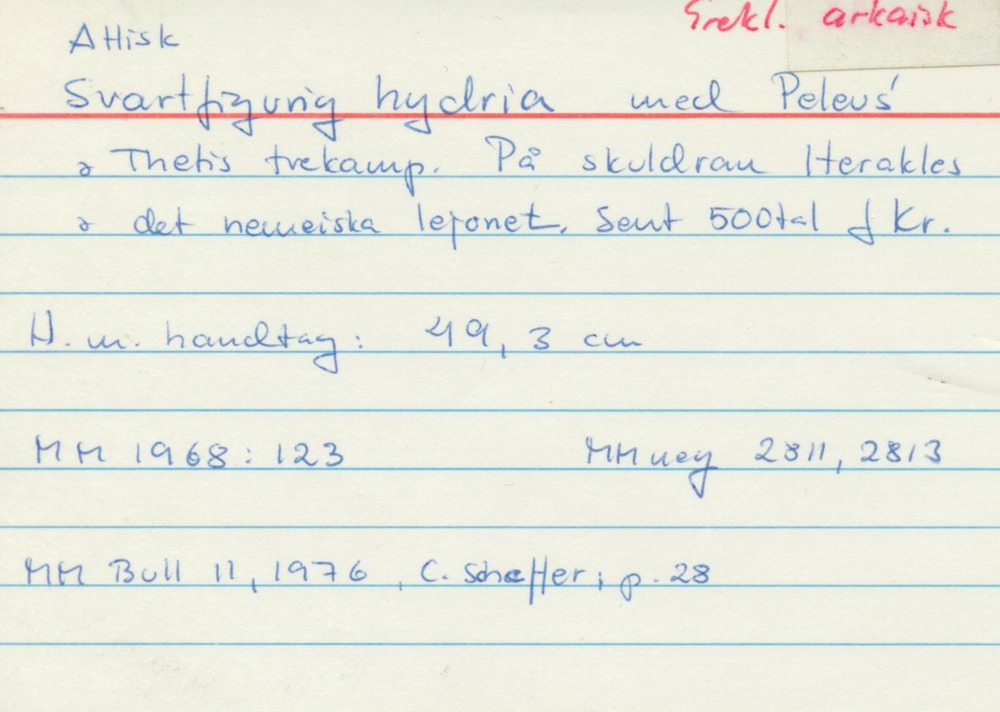 Grekl. arkaisk
Attisk
Svartfigurig hydria med Peleus'
o Thetis tvekamp. På skuldran Herakles
o det nemeiska lejonet. Sent 500tal f Kr.
H. m. handtag: 49,3 cm
MM 1968:123 MM neg 2811, 2813
MM Bull 11, 1976, C. Scheffer; p. 28